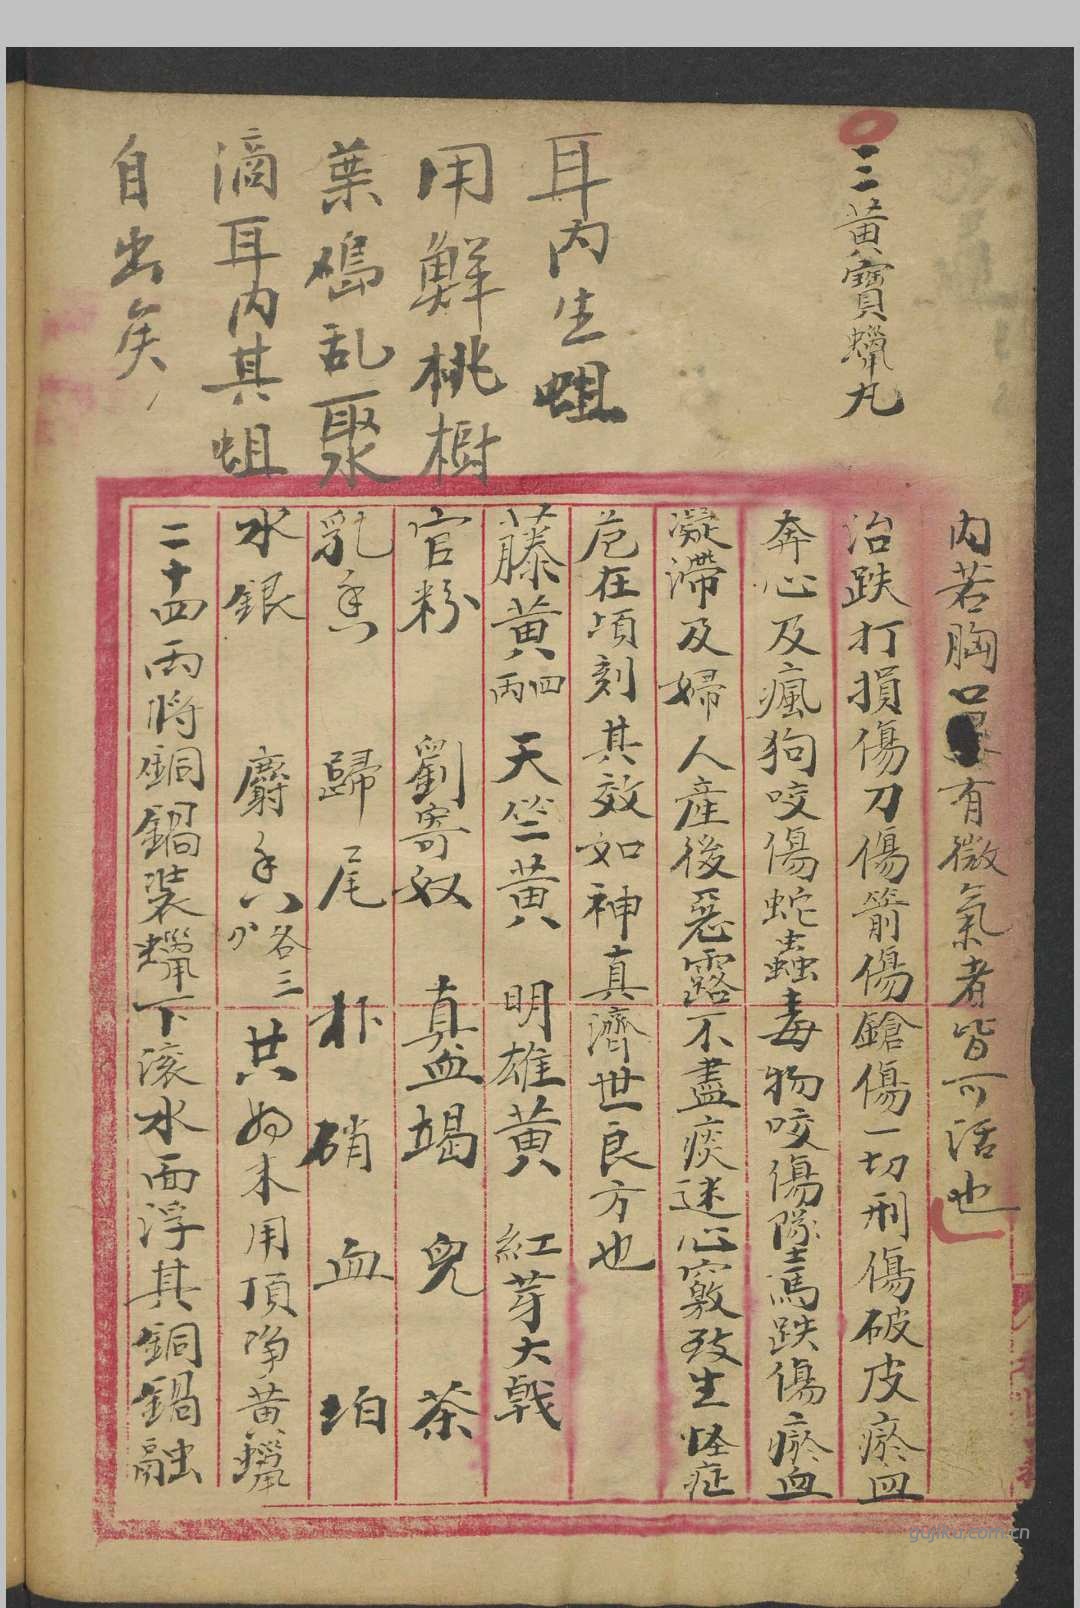 三黃寶蠟丸
耳內生蛆
用鮮桃樹
葉搗乱聚
滴耳內其蛆
自出矣
內若胸口有微氣者皆可活也
治跌打損傷刀傷箭傷鎗傷一切刑傷破皮瘀血
奔心及瘋狗咬傷蛇蟲毒物咬傷墜馬跌傷瘀血
凝滯及婦人產後惡露不盡痰迷心竅致生怪症
危在頃刻其效如神真濟世良方也
藤黃四兩 天竺黃 明雄黃 紅芽大戟
官粉 劉寄奴 真血竭 兒茶
乳香 歸尾 朴硝 血珀
水銀 麝香各三分 共為末用頂净黃蠟
二十四兩將銅鍋裝蠟下滾水面浮其銅鍋融
gujiku.com.cn